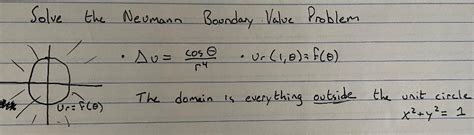 Solve the Neumann Boundary Value Problem
· Δu = cosθ/r⁴ · Ur(1,θ)=f(θ)
Ur=f(θ)
The domain is everything outside the unit circle
x²+y²=1